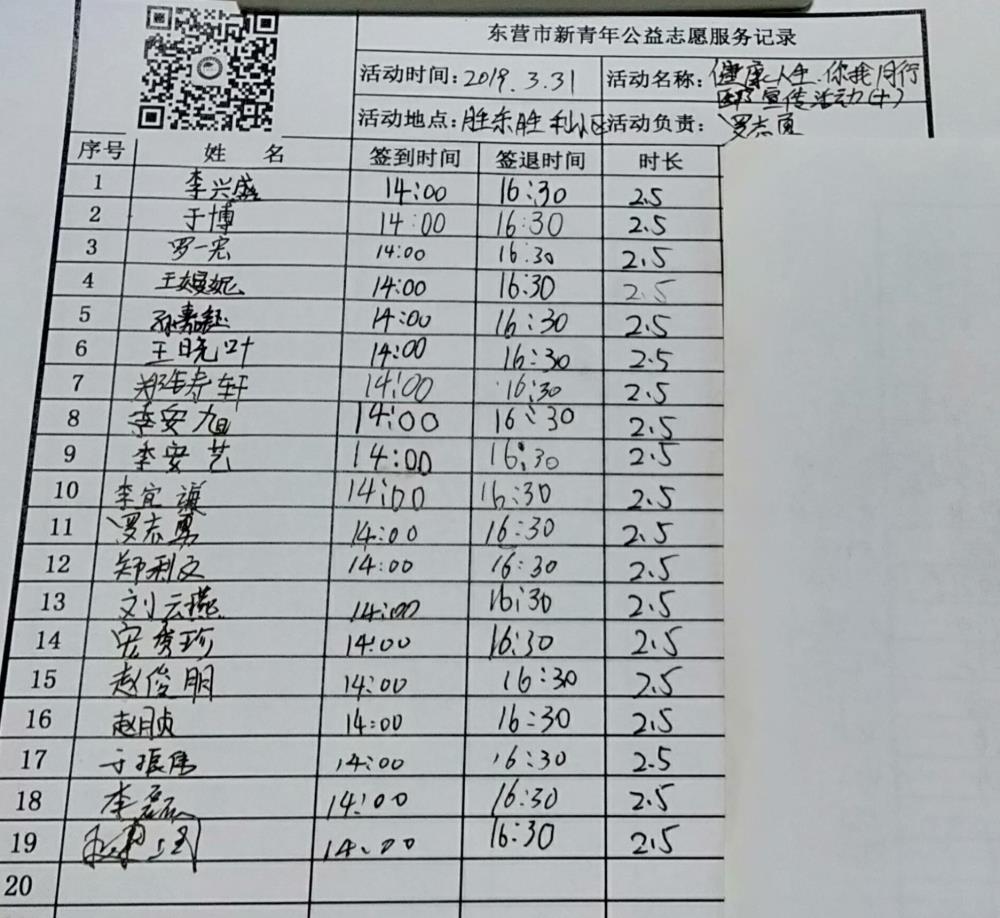 东营市新青年公益志愿服务记录
活动时间:2019.3.31 活动名称:健康人生、你我同行
宣传活动(十)
活动地点:胜东胜利小区 活动负责:罗志勇
序号 姓名 签到时间 签退时间 时长
1 李兴盛 14:00 16:30 2.5
2 于博 14:00 16:30 2.5
3 罗一宏 14:00 16:30 2.5
4 王嫚妮 14:00 16:30 2.5
5 孙嘉 14:00 16:30 2.5
6 王晓叶 14:00 16:30 2.5
7 郑 轩 14:00 16:30 2.5
8 李安旭 14:00 16:30 2.5
9 李安艺 14:00 16:30 2.5
10 李宜谦 14:00 16:30 2.5
11 罗志勇 14:00 16:30 2.5
12 郑利文 14:00 16:30 2.5
13 刘云燕 14:00 16:30 2.5
14 宏秀珍 14:00 16:30 2.5
15 赵俊朋 14:00 16:30 2.5
16 赵月贞 14:00 16:30 2.5
17 于振伟 14:00 16:30 2.5
18 李磊 14:00 16:30 2.5
19 14:00 16:30 2.5
20